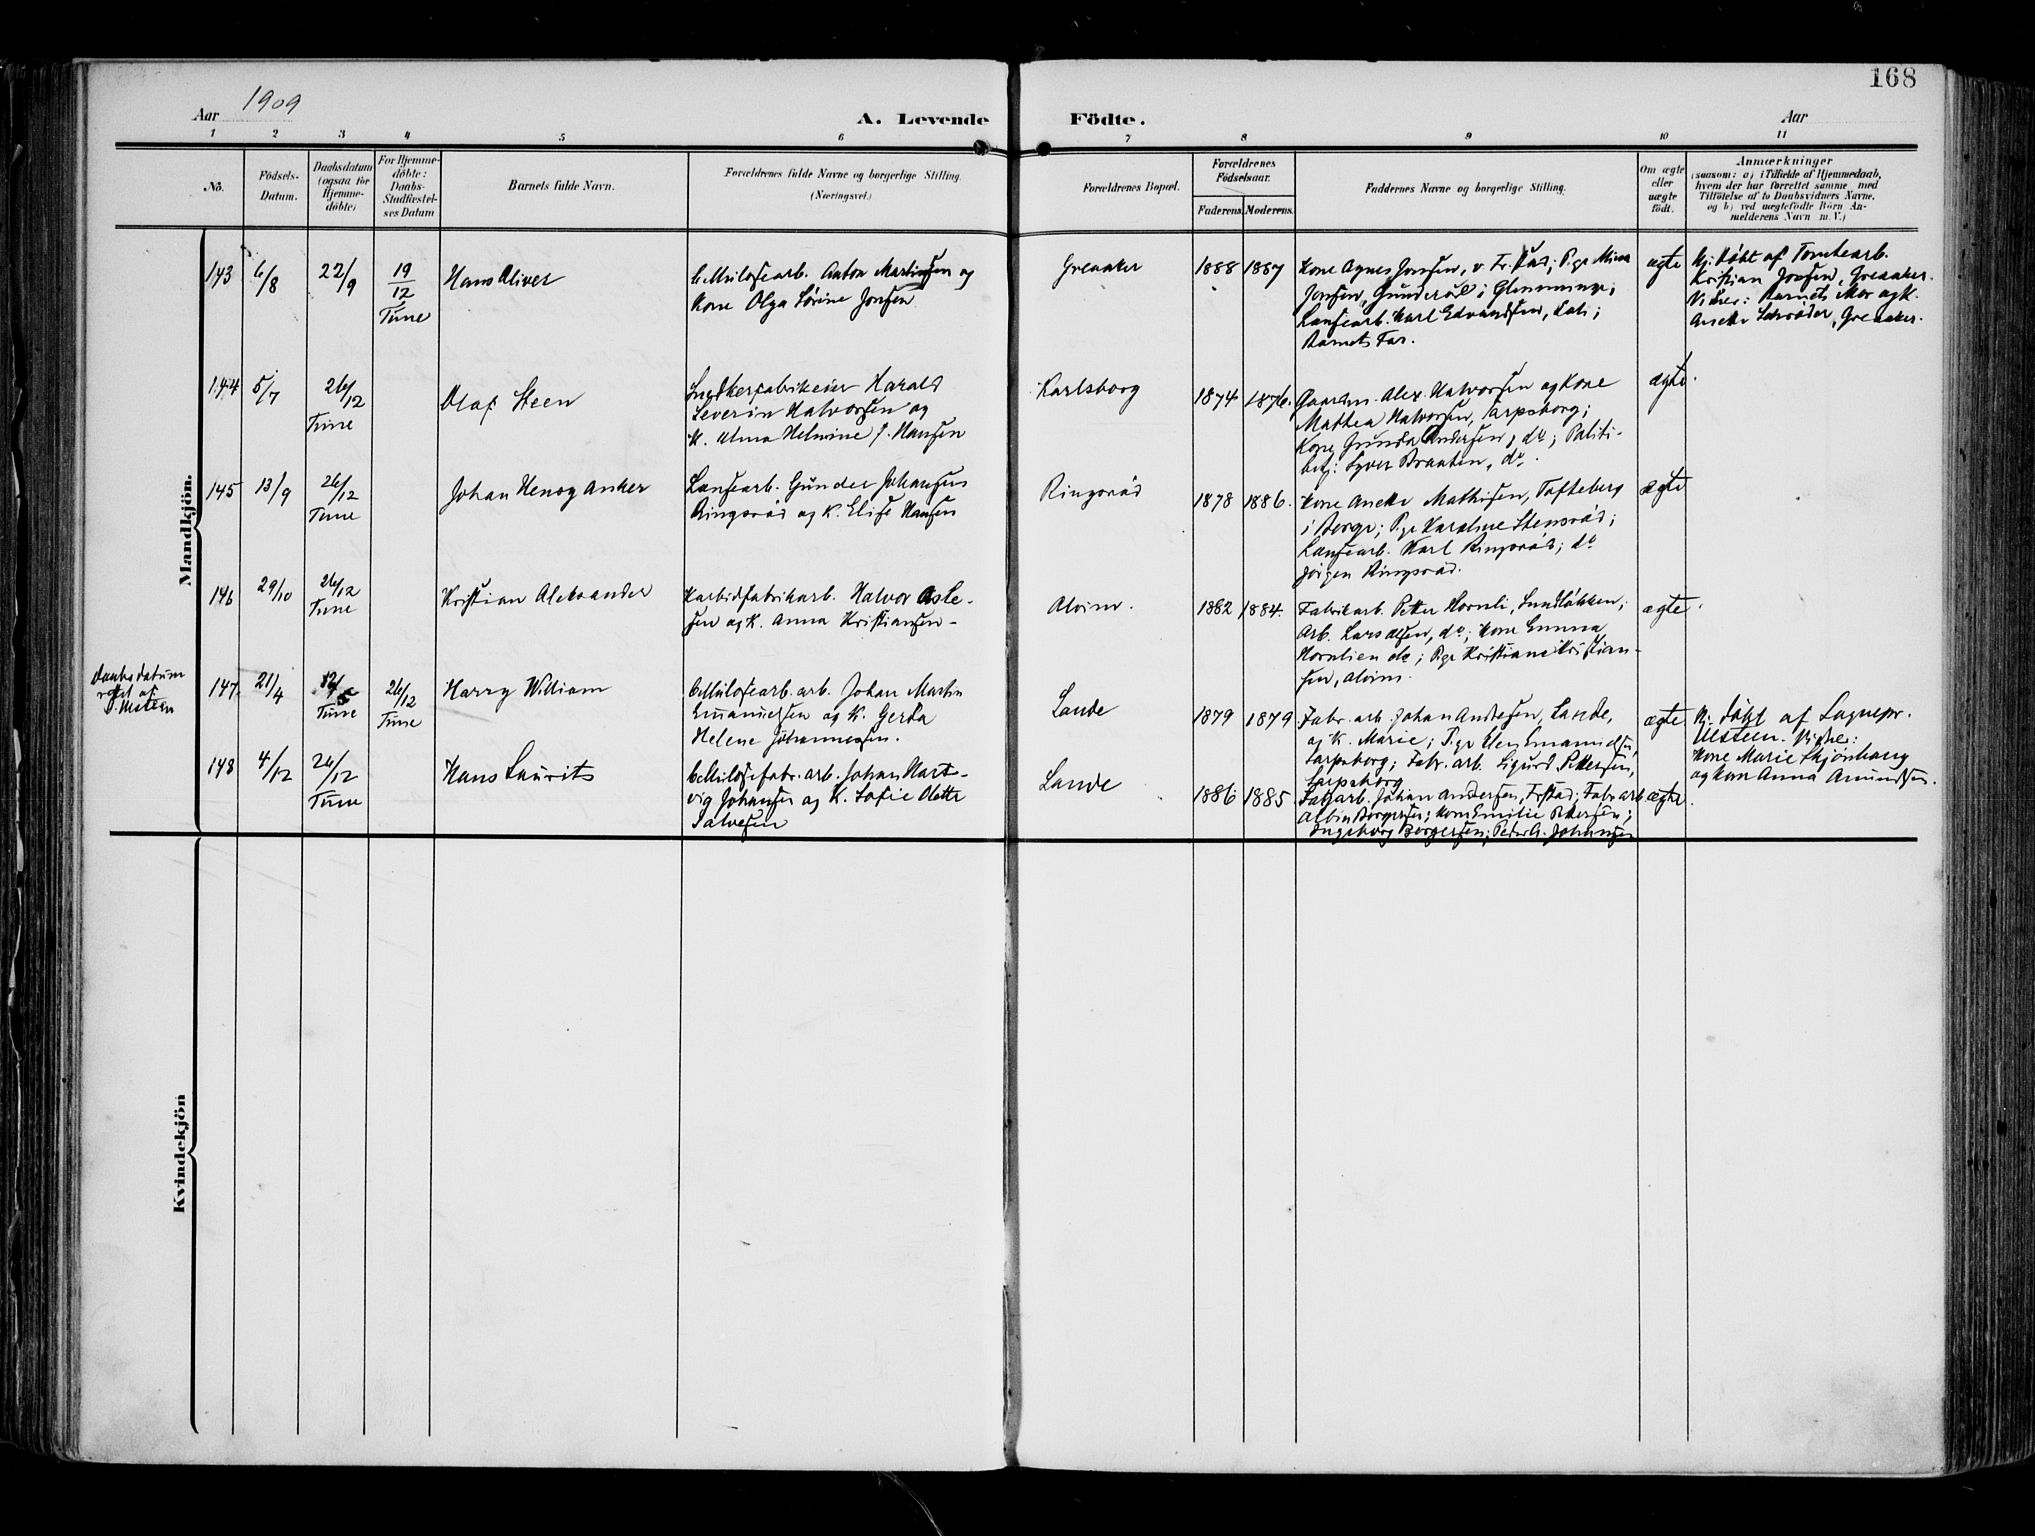 168
Aar 1909
A. Levende Födte.
Aar
1 2 3 4 5 6 7 8 9 10 11
No.
Födsels-
Datum.
Daabsdatum
(ogsaa for
Hjemme-
döbte)
For Hjemme-
döbte:
Daabs-
Stadfæstel-
ses Datum
Barnets fulde Navn.
Forældrenes fulde Navne og borgerlige Stilling.
(Næringsvei.)
Forældrenes Bopæl.
Forældrenes
Födselsaar.
Faderens. Moderens.
Faddernes Navne og borgerlige Stilling.
Om ægte
eller
uægte
födt.
Anmærkninger
(saasom: a) i Tilfælde af Hjemmedaab,
hvem der har forrettet samme med
Tilföielse af to Daabsvidners Navne,
og b) ved uægtefödte Börn An-
melderens Navn m. V.)
Mandkjön.
143 6/8 22/9 19/12 Tune
Hans Oliver
Cellulosearb. Anton Martinsen og
Kone Olga Lovine Jonsen
Greaaker
1888 1887
Kone Agnes Jonsen, v. Fr.stad; Pige Mina
Jonsen, Gunderöd i Glemminge;
Lansearb. Karl Edvardsen,
Barnets Far.
ægte
Hj. döbt af Tomtearb.
Kristian Jossen, Greaaker.
Vidner: Barnets Mor og K.
Anette Schrøder, Greaaker.
144 5/7 26/12 Tune
Olaf Steen
Harald
Severin Halvorsen og
K. Alma Helmine J. Hansen
Karlsborg
1874 1876.
Gaardm. Alex. Halvorsen og Kone
Mathea Halvorsen, Sarpsborg;
Kone Gunda Andersen, do; Politi-
betj: Syver Braaten, do.
ægte.
145 13/9 26/12 Tune
Johan Henog Anker
Lansearb. Gunder Johansen
Ringsröd og K. Elise Hansen
Ringsröd
1878 1886.
Kone Anette Mathisen, Tofteberg
i Borge; Pige Karoline Stensröd;
Lansearb. Karl Ringsröd; do
Jörgen Ringsröd.
ægte
146 29/10 26/12 Tune
Kristian Aleksander
Karbidfabrikarb. Halvor Asle-
sen og K. Anna Kristiansen-
Alvim.
1882 1884.
Fabrikarb. Petter Hornli, Lundløkken;
Arb. Lars Olsen, do; Kone Emma
Hornlien do; Pige Kristiane Kristian-
sen, Alvim.
ægte.
Daabsdatum
rettet af
S. Ulsteen
147. 21/4 12/5 Tune 26/12 Tune
Harry William
Cellulosearb. arb. Johan Martin
Emanuelsen og K. Gerda
Helene Johannessen.
Lande
1879 1879.
Fabr. arb. Johan Andersen, Lande,
og K. Marie; Pige Emanuelsen,
Sarpsborg; Fabr. arb. Sigurd Pettersen,
Sarpsborg
ægte
Hj. döbt af Sognepr.
Ulsteen. Vidner:
Kone Marie Skjönhaug
og Kone Anna Amundsen.
148 4/12 26/12 Tune
Hans Laurits
Cellulosefabr. arb. Johan Hart-
vig Johansen og K. Sofie Olette
Salvesen
Lande
1886 1885.
Fabrarb. Johan Andersen, Frstad; Fabr. arb
Albin Borgersen; Kone Emilie Pettersen;
Ingeborg Borgersen; Peder A. Johansen
ægte.
Kvindekjön